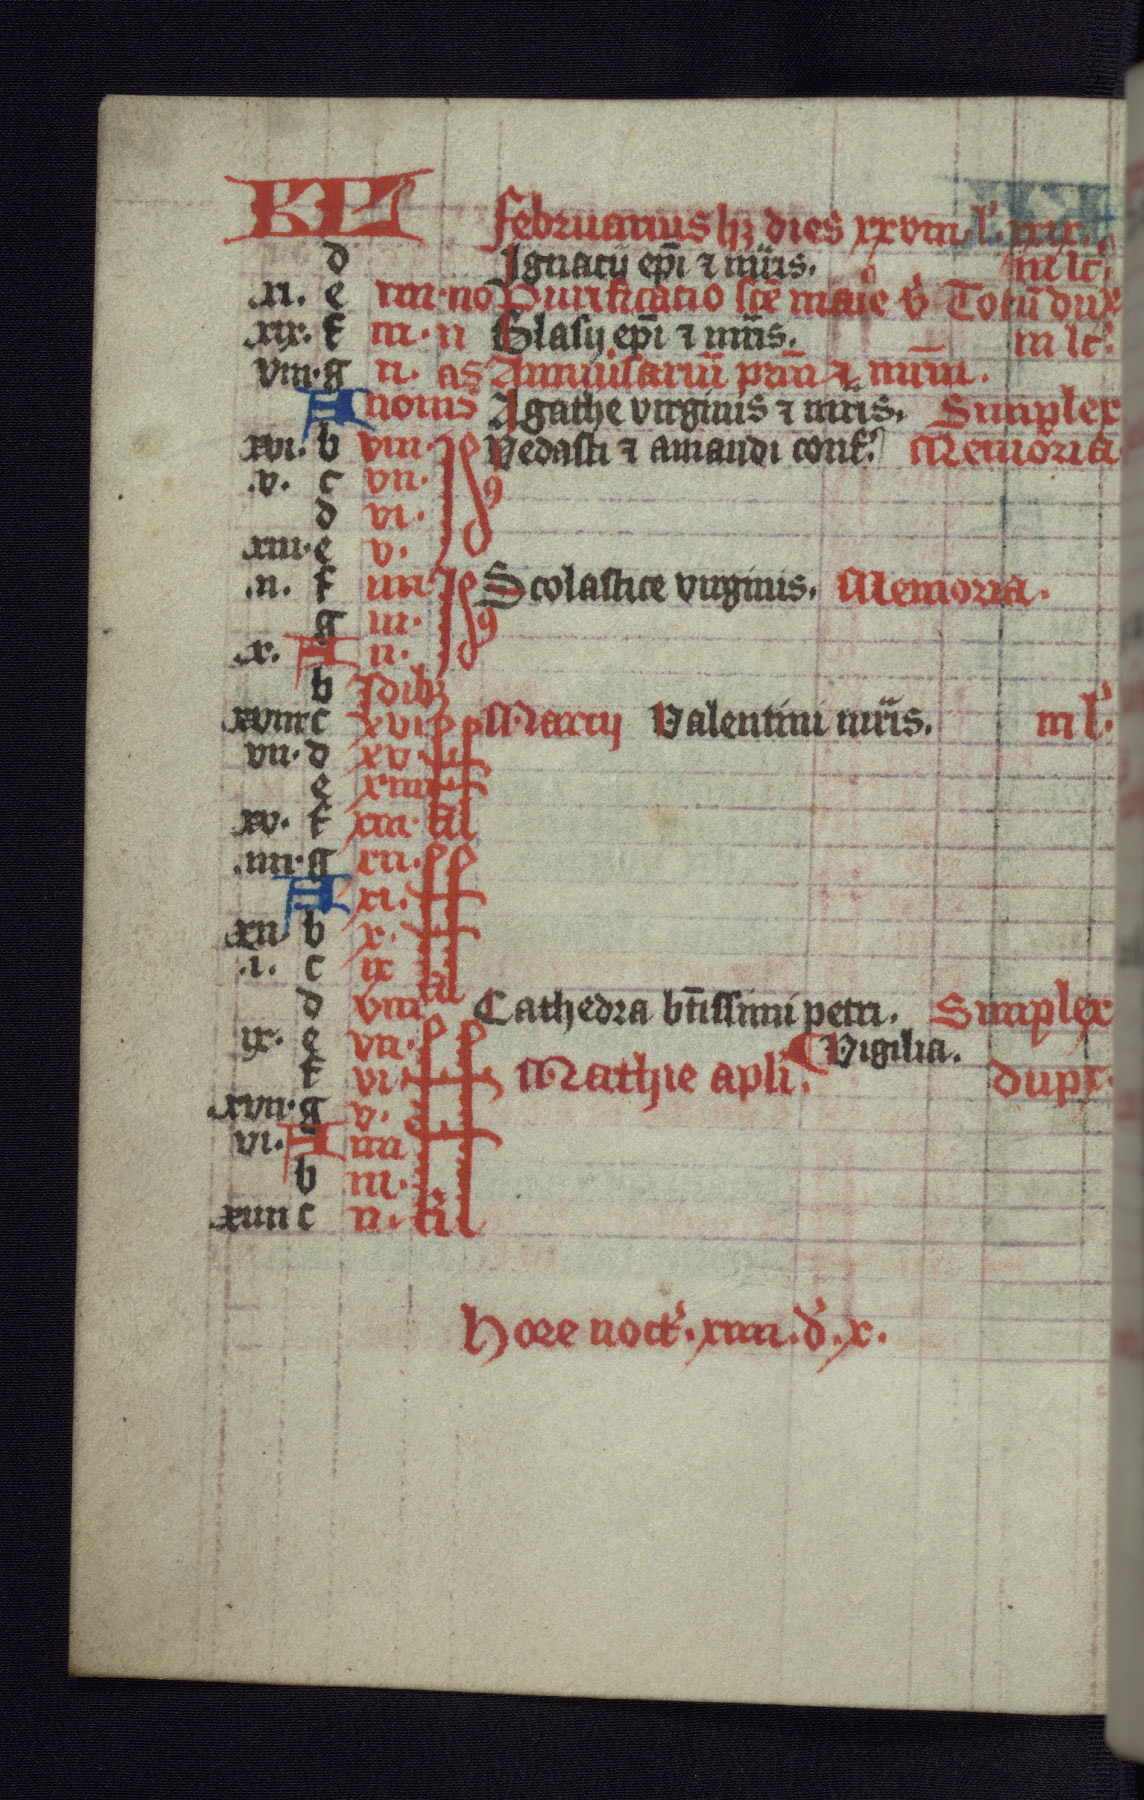 KL februarius hꝫ dies xxviii. l' xxix.
d Ignacij ep̄i ⁊ mr̄is. iii lc'.
.xi. e iiii. no Purificatio sc̄e marie v̓ Totū dupͣ
.xix. f iii. n Blasij ep̄i ⁊ mr̄is. iii lc'.
viii. g ii. as Anniuͥsariū prm̄ ⁊ mr̄m.
A nonis Agathe virginis ⁊ mr̄is. Simplex
.xvi. b viii. Id9 Vedasti ⁊ amandi conf'. Memoria
.v. c vii.
d vi.
.xiii. e v.
.ii. f iiii. Id9 Scolastice virginis. Memoria.
g iii.
.x. A ii.
b Idibꝫ
.xviii c xvi Marcij Valentini mr̄is. iii l'.
vii. d xv
e xiiii
.xv. f xiii. kl
.iiii. g xii.
A xi.
.xii. b x.
.i. c ix kl
d viii Cathedra bt̄issimi petri. Simplex
.ix. e vii. Vigilia.
f vi Mathie apl̄i. dupͣ.
.xvii. g v.
vi. A iiii
b iii.
.xiiii c ii. kl
Hore noct'. xiiii. d'. x.